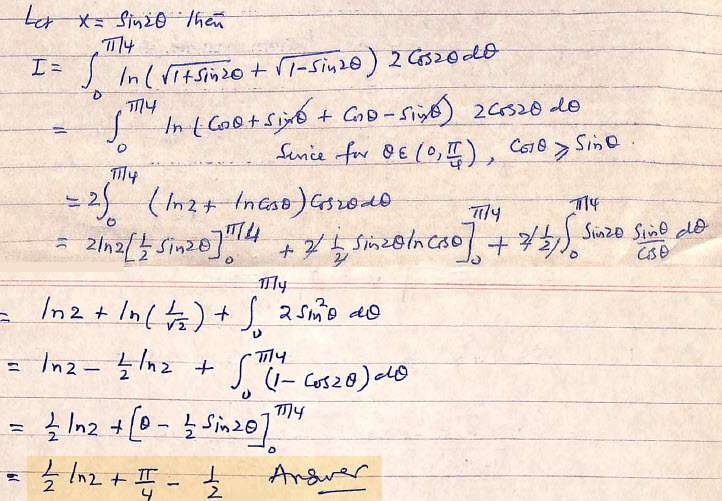 Let x = Sin2θ then
I = ∫₀^{π/4} ln(√(1+Sin2θ) + √(1-Sin2θ)) 2Cos2θdθ
= ∫₀^{π/4} ln(Cosθ + Sinθ + Cosθ - Sinθ) 2Cos2θ dθ
Since for θ∈(0, π/4), Cosθ ≥ Sinθ.
= 2∫₀^{π/4} (ln2 + lnCosθ) Cos2θdθ
= 2ln2[½ Sin2θ]₀^{π/4} + 2·½ Sin2θ lnCosθ]₀^{π/4} + 2·½∫₀^{π/4} Sin2θ Sinθ/Cosθ dθ
= ln2 + ln(1/√2) + ∫₀^{π/4} 2Sin²θ dθ
= ln2 - ½ ln2 + ∫₀^{π/4} (1 - Cos2θ)dθ
= ½ ln2 + [θ - ½ Sin2θ]₀^{π/4}
= ½ ln2 + π/4 - ½ Answer